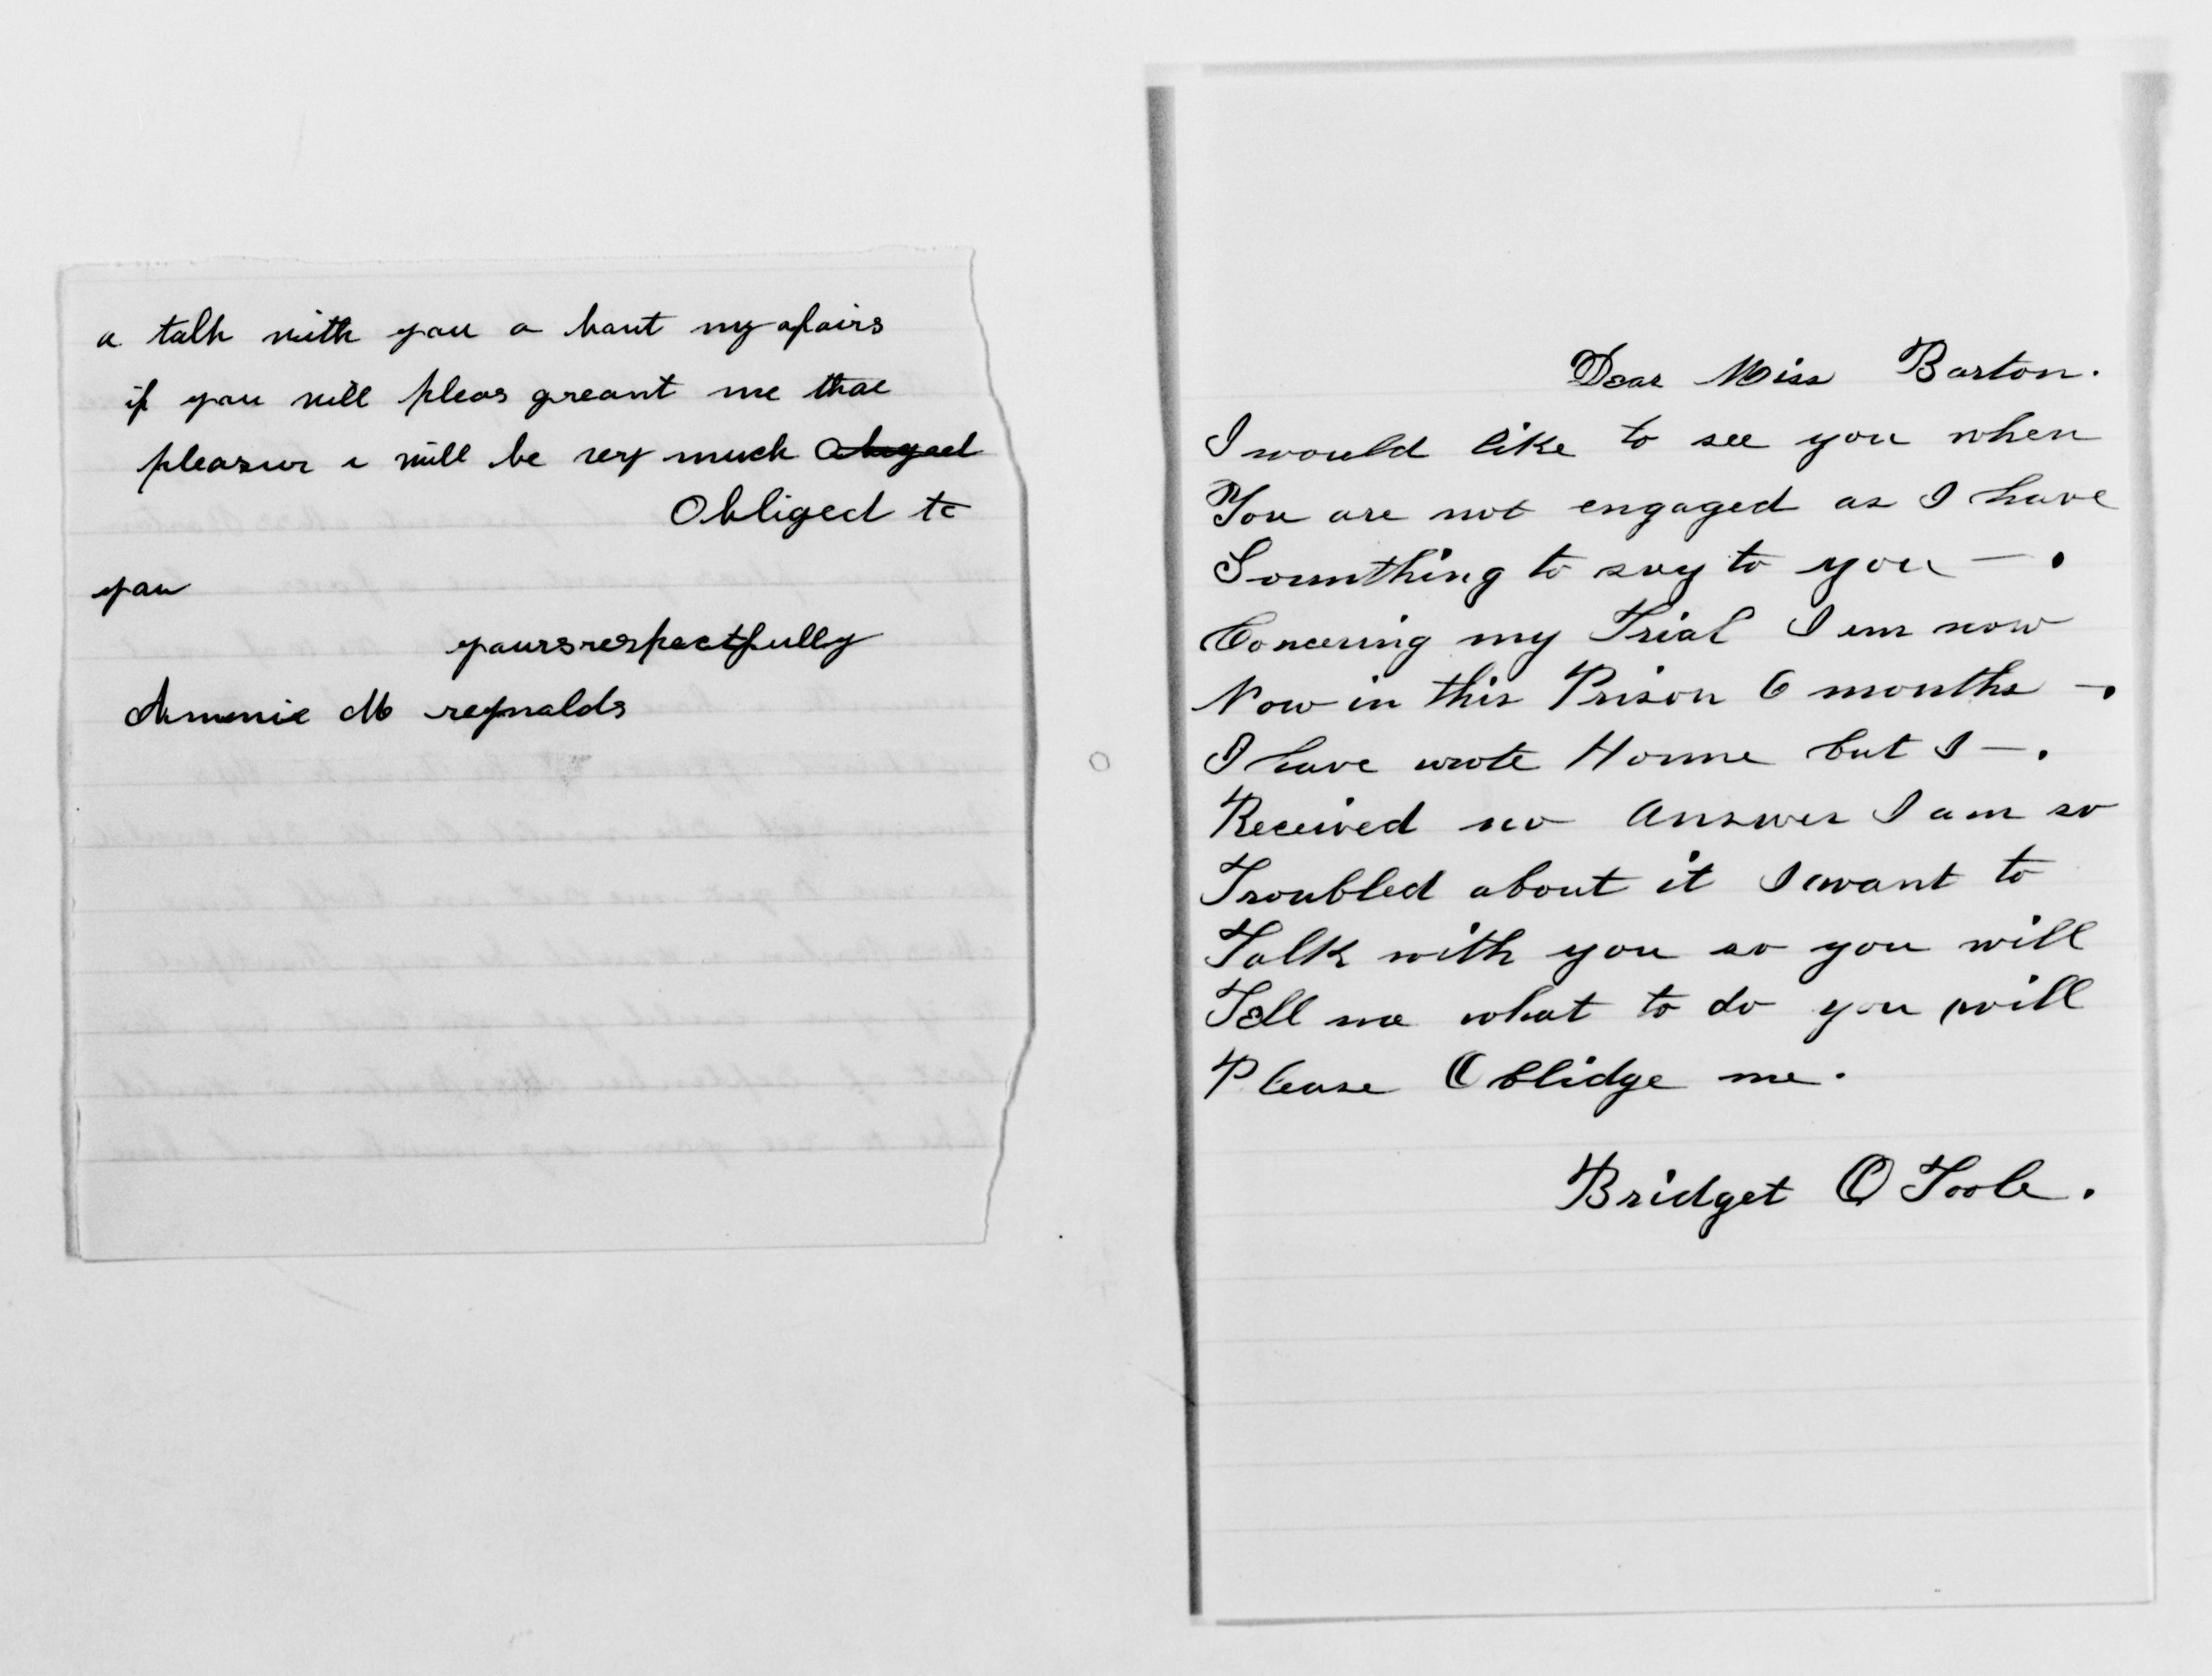 a talk with you a bout my afairs
if you will pleas greant me that
pleasur i will be very much
Obliged to
you
yours respectfully
Annie M reynalds
Dear Miss Barton.
I would like to see you when
You are not engaged as I have
Sounthing to say to you — .
Concering my Trial I am now
Now in this Prison 6 months — .
I have wrote Home but I — .
Received no answer I am so
Troubled about it I want to
Talk with you so you will
Tell me what to do you will
Please Oblidge me.
Bridget O Toole.